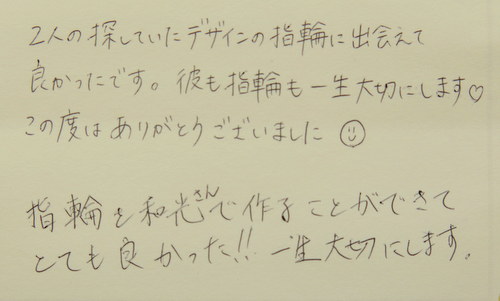 2人の探していたデザインの指輪に出会えて
良かったです。彼も指輪も一生大切にします♡
この度はありがとうございました☺
指輪を和光さんで作ることができて
とても良かった!! 一生大切にします。